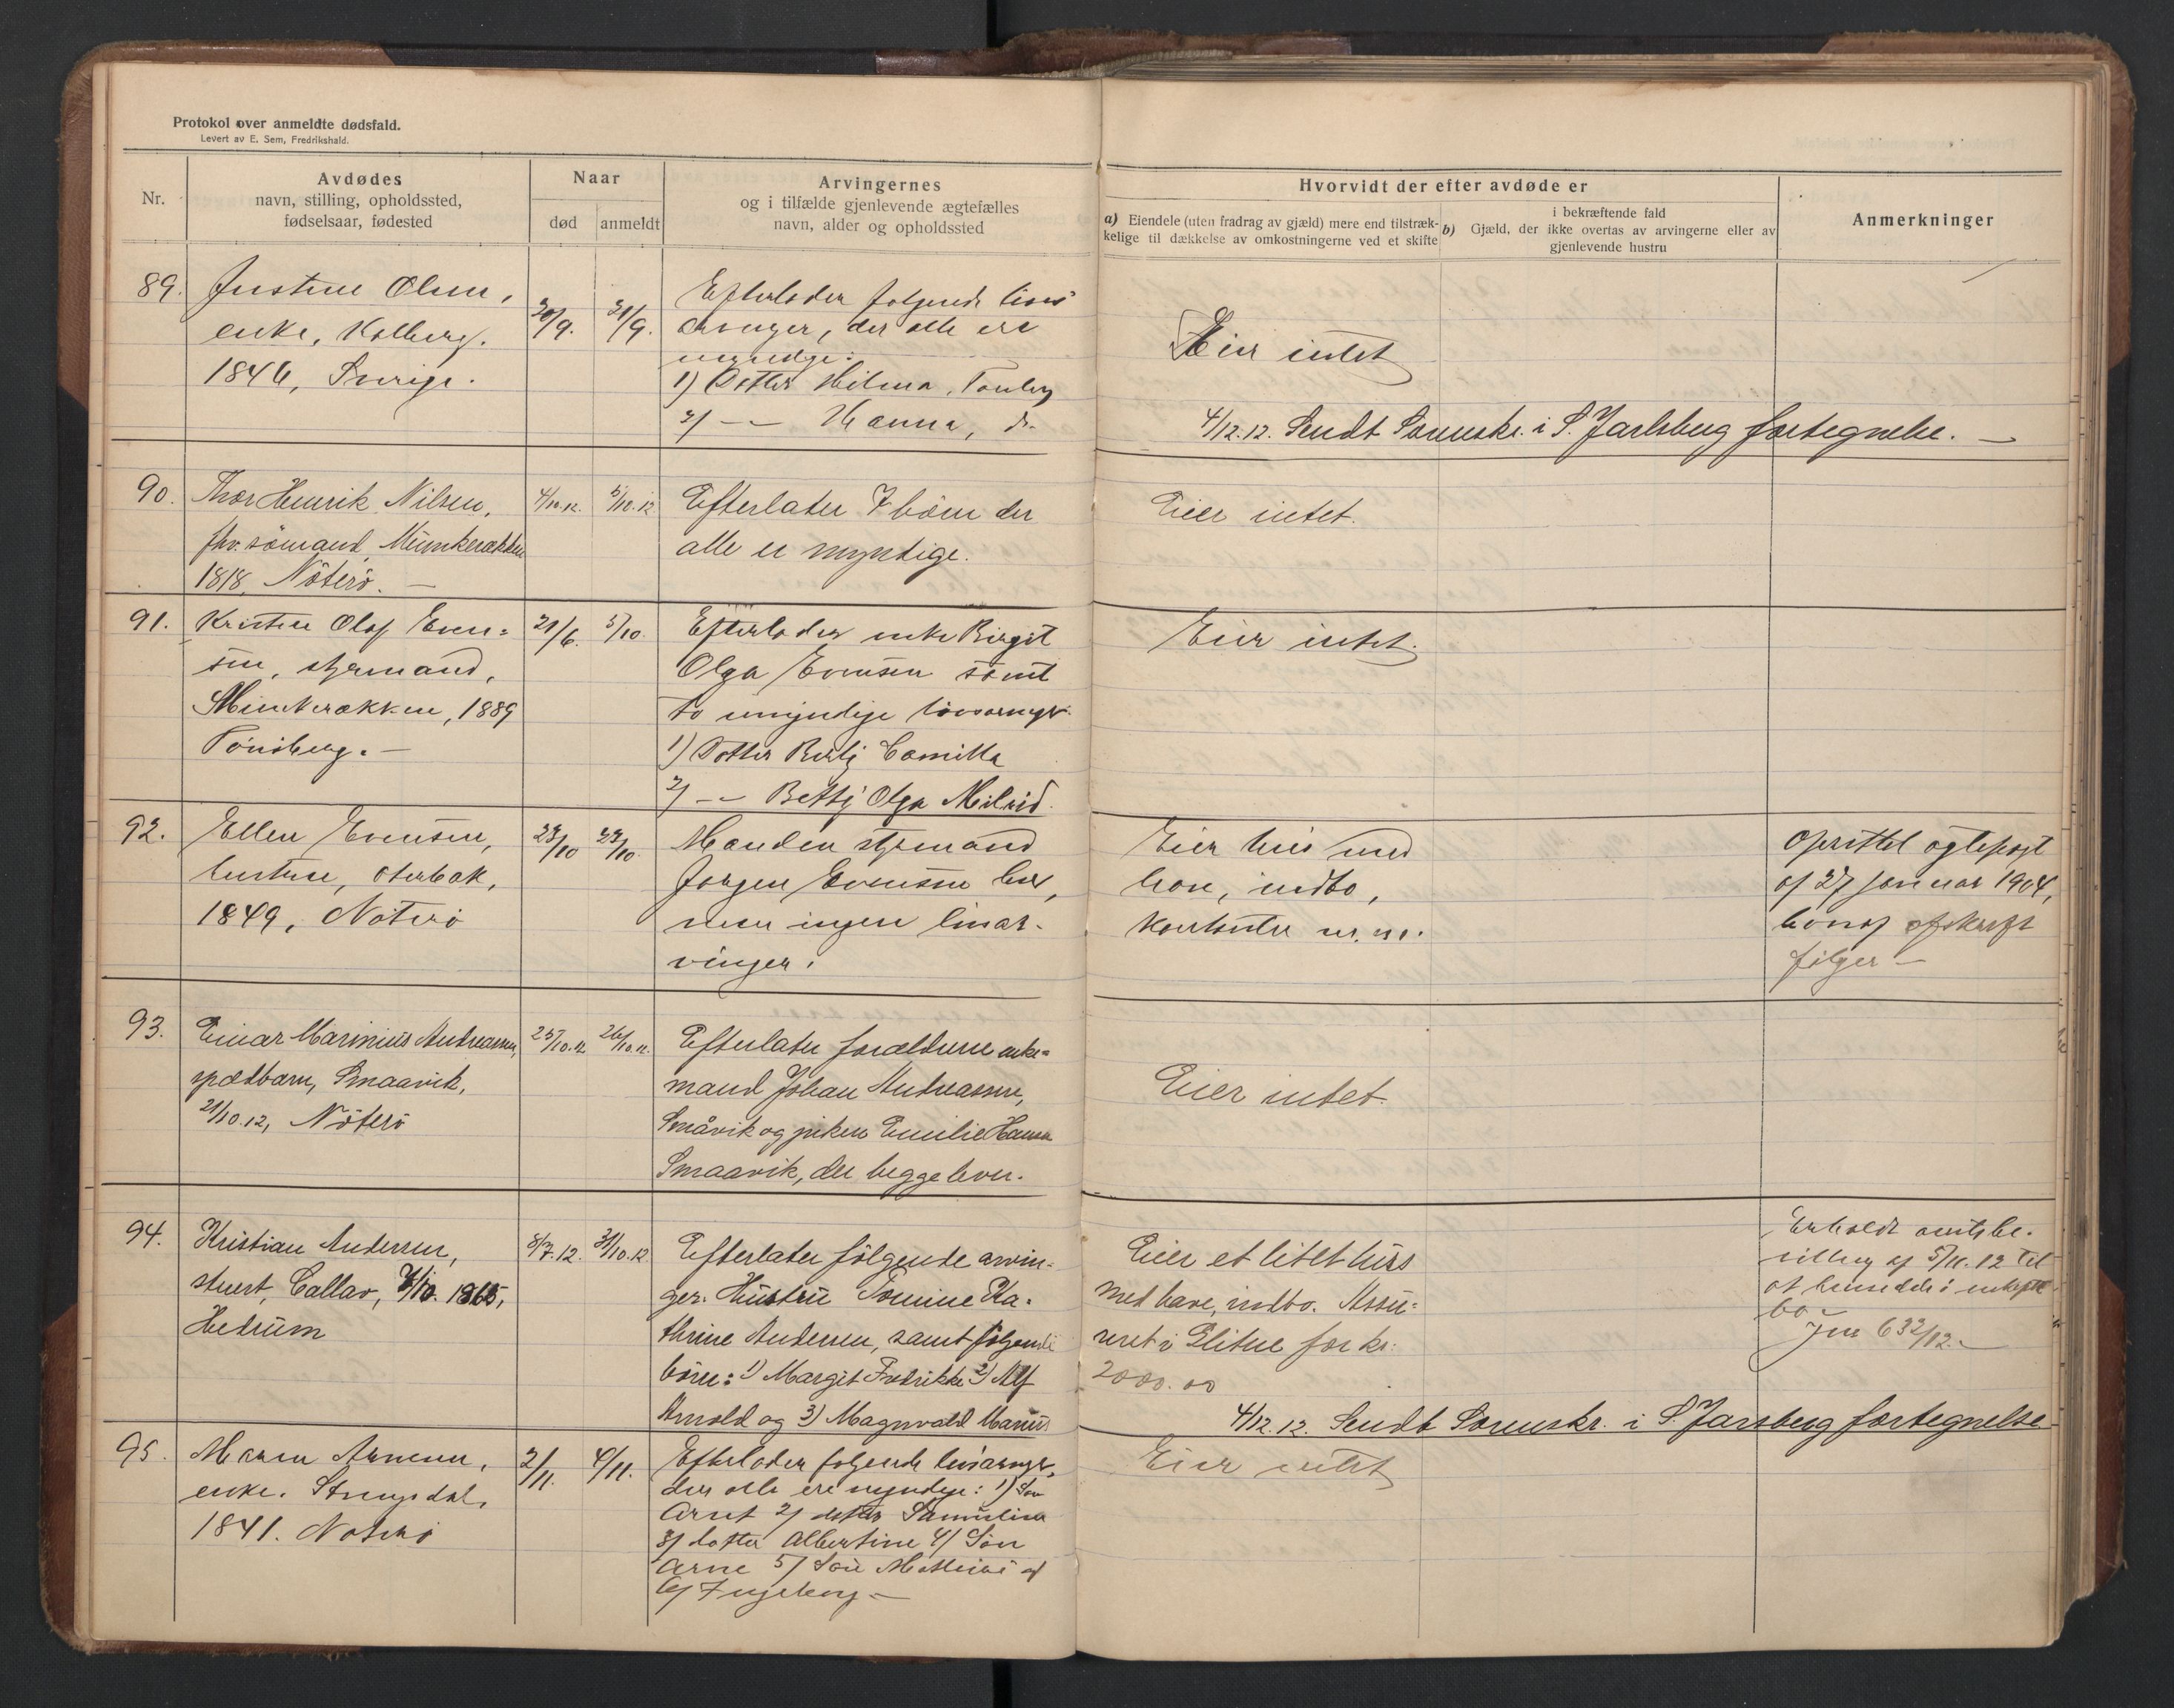 Protokol over anmeldte dødsfald.
Levert av E. Sem, Fredrikshald.
Nr.
Avdødes
navn, stilling, opholdssted,
fødselsaar, fødested
Naar
død
anmeldt
Arvingernes
og i tilfælde gjenlevende ægtefælles
navn, alder og opholdssted
Hvorvidt der efter avdøde er
a) Eiendele (uten fradrag av gjæld) mere end tilstræk-
kelige til dækkelse av omkostningerne ved et skifte
i bekræftende fald
b) Gjæld, der ikke overtas av arvingerne eller av
gjenlevende hustru
Anmerkninger
89.
Justine Olsen,
enke, Kolberg.
1846, Sverige.
30/9.
Efterlader følgende livs
arvinger, der alle ere
myndige:
1) Datter Hilma, Tønsberg
2) -"- Hanna, do
Eier intet
4/12.12. Sendt Sorenskr. i S. Jarlsberg fortegnelse. —
90.
Thor Henrik Nilsen,
fhv. sömand, Munkerækken
1818, Nöterö. —
4/10.12. 5/10.12
Efterlater 7 börn der
alle er myndige.
Eier intet.
91.
Kristen Olaf Even=
sen, styrmand,
Munkerækken, 1889
Tönsberg. —
21/6. 5/10.
Efterlader enke Birgit
Olga Evensen samt
to umyndige livsarvger.
1) Datter Camilla
2) -"- Betty Olga Milrid.
Eier intet.
92.
Ellen Evensen,
hustru, Oterbæk,
1849, Nöterö
23/10 23/10.
Manden styrmand
Jørgen Evensen lever,
men ingen livsar-
vinger.
Eier hus med
have, indbo,
kontanter m. m.
Oprettet ægtepagt
af 27 januar 1904,
hvoraf afskrift
følger —
93.
Einar Marinius Andreassen,
spædbarn, Smaavik,
21/10.12, Nöterö
25/10.12 26/10.12.
Efterlater forældrene enke=
mand Johan Andreassen,
Småvik og piken Emilie Hansen
Smaavik, der begge lever.
Eier intet.
94.
Kristian Andersen,
stuert, Callao, 1865,
Hedrum
8/7.12. 31/10.12
Efterlater følgende arvin=
ger: Hustru Tomine Ka=
thrine Andersen, samt følgende
börn: 1) Margit Fredrikke 2) Alf
Arnold og 3) Magnvald Marius
Eier et litet hus
med have, indbo. Assu=
reret i Elitne for kr.
2000.00
4/12.12. Sendt Sorenskr. i S. Jarsberg fortegnelse
Erholdt amtsbe-
villing af 5/11.12 til
at hensidde i uskiftet
bo.
Jnr 632/12.
95.
Maren Arnesen,
enke. Strengsdal,
1841. Nöterö
2/11. 4/11.
Efterlader følgende livsarvger,
der alle ere myndige: 1) Søn
Arnt 2) datter Samueline
3) datter Albertine 4) Søn
Arne 5) Søn Mathias og
6) Ingeborg —
Eier intet